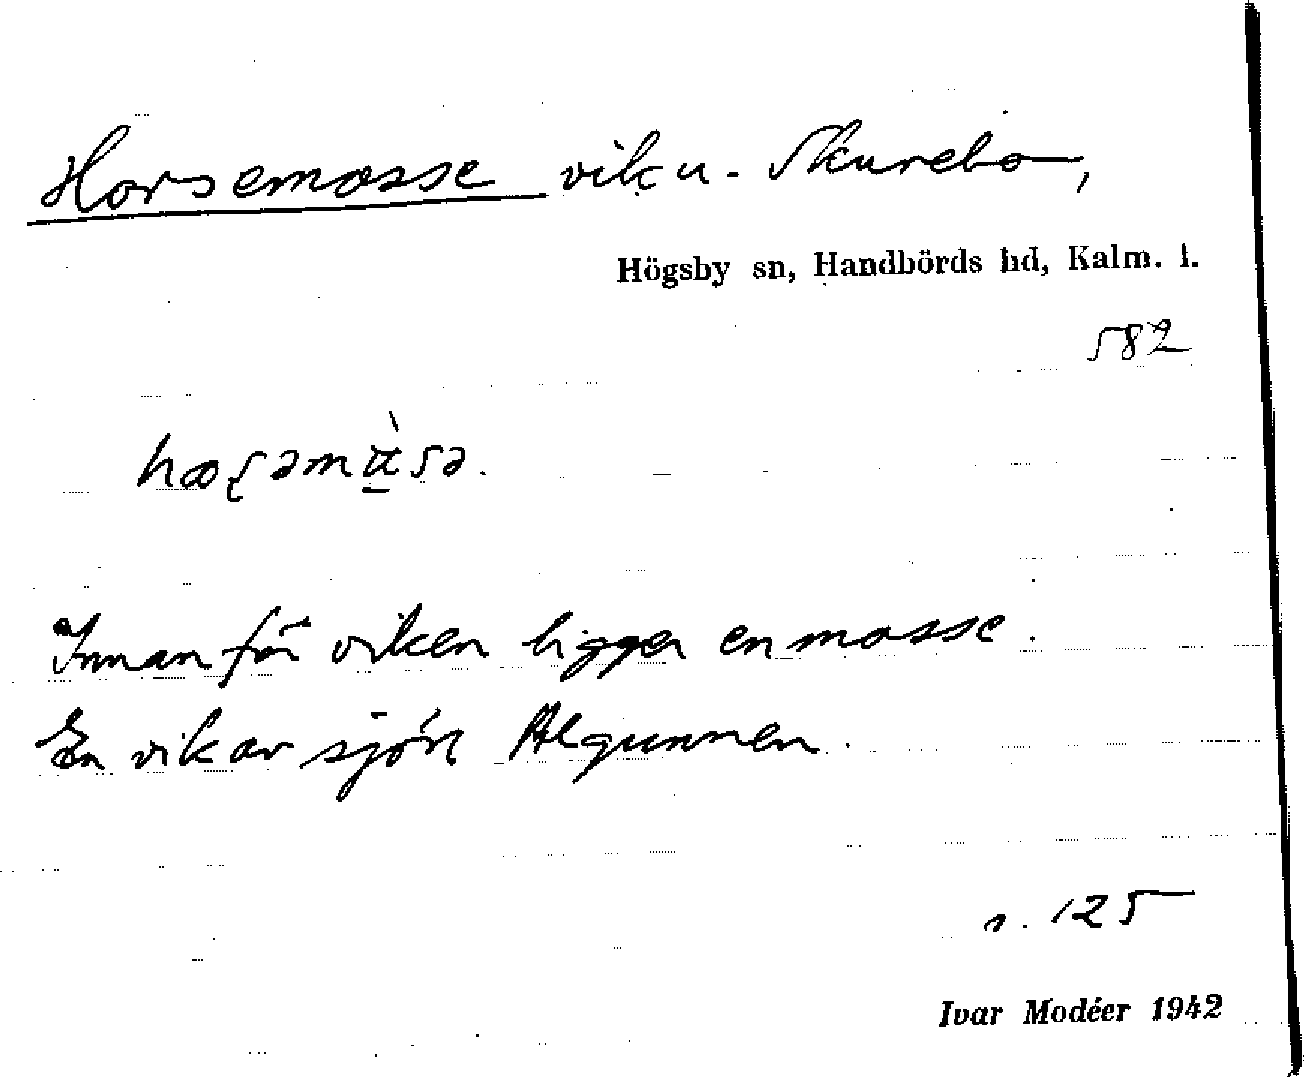 Horsemosse vik u. Skurebo,
Högsby sn, Handbörds hd, Kalm. l.
582
Innanför viken ligger en mosse.
En vik av sjön Algunnen.
s. 125
Ivar Modéer 1942